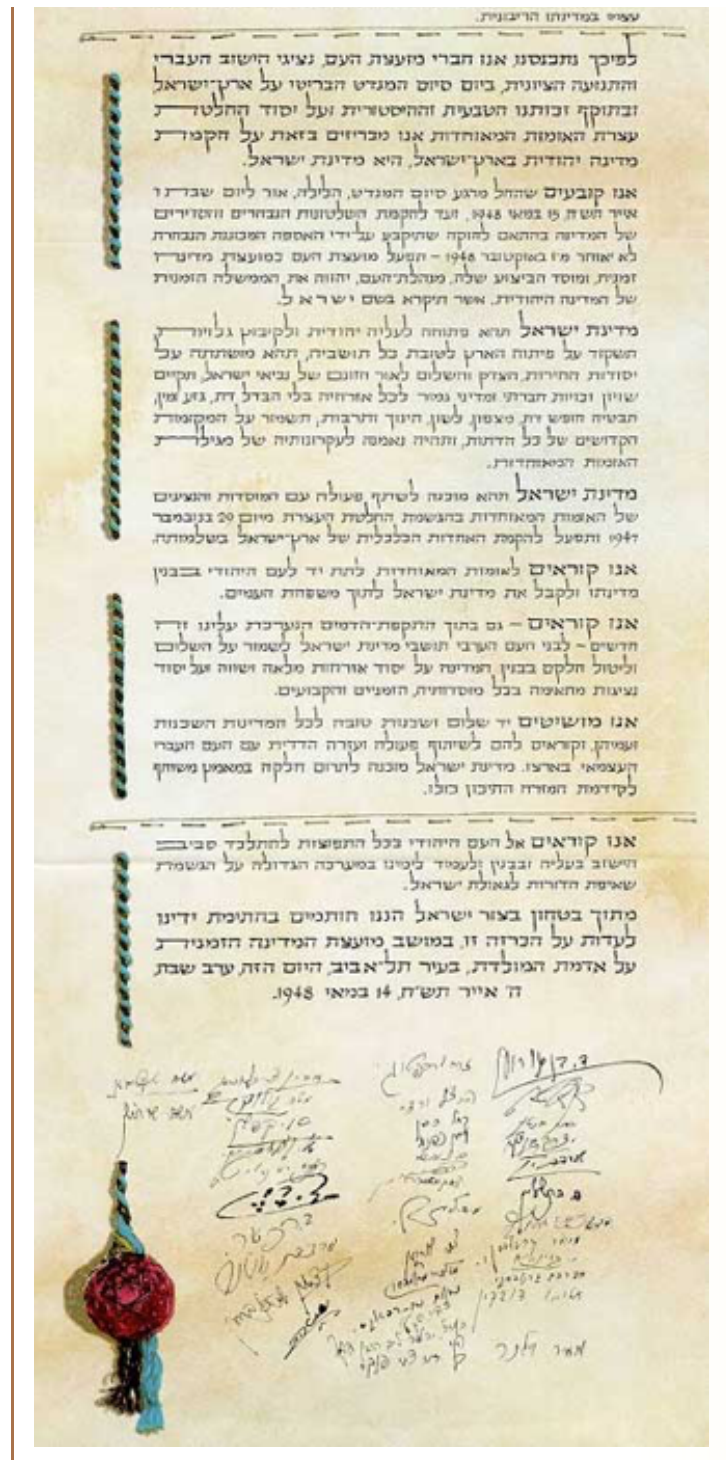 עצמו במדינתו הריבונית.
לפיכך נתכנסנו, אנו חברי מועצת העם, נציגי הישוב העברי
והתנועה הציונית, ביום סיום המנדט הבריטי על ארץ־ישראל
ובתוקף זכותנו הטבעית וההיסטורית ועל יסוד החלטת
עצרת האומות המאוחדות אנו מכריזים בזאת על הקמת
מדינה יהודית בארץ־ישראל, היא מדינת ישראל.
אנו קובעים שהחל מרגע סיום המנדט, הלילה, אור ליום שבת ו
אייר תש״ח, 15 במאי 1948, ועד להקמת השלטונות הנבחרים והסדירים
של המדינה בהתאם לחוקה שתיקבע על־ידי האספה המכוננת הנבחרת
לא יאוחר מ־1 באוקטובר 1948 – תפעל מועצת העם כמועצת מדינה
זמנית, ומוסד הביצוע שלה, מנהלת־העם, יהווה את הממשלה הזמנית
של המדינה היהודית, אשר תיקרא בשם ישראל.
מדינת ישראל תהא פתוחה לעליה יהודית ולקיבוץ גלויות,
תשקוד על פיתוח הארץ לטובת כל תושביה, תהא מושתתה על
יסודות החירות, הצדק והשלום לאור חזונם של נביאי ישראל, תקיים
שויון זכויות חברתי ומדיני גמור לכל אזרחיה בלי הבדל דת, גזע ומין,
תבטיח חופש דת, מצפון, לשון, חינוך ותרבות, תשמור על המקומות
הקדושים של כל הדתות, ותהיה נאמנה לעקרונותיה של מגילת
האומות המאוחדות.
מדינת ישראל תהא מוכנה לשתף פעולה עם המוסדות והנציגים
של האומות המאוחדות בהגשמת החלטת העצרת מיום 29 בנובמבר
1947 ותפעל להקמת האחדות הכלכלית של ארץ־ישראל בשלמותה.
אנו קוראים לאומות המאוחדות לתת יד לעם היהודי בבנין
מדינתו ולקבל את מדינת ישראל לתוך משפחת העמים.
אנו קוראים – גם בתוך התקפת־הדמים הנערכת עלינו זה
חדשים – לבני העם הערבי תושבי מדינת ישראל לשמור על השלום
וליטול חלקם בבנין המדינה על יסוד אזרחות מלאה ושווה ועל יסוד
נציגות מתאימה בכל מוסדותיה, הזמניים והקבועים.
אנו מושיטים יד שלום ושכנות טובה לכל המדינות השכנות
ועמיהן, וקוראים להם לשיתוף פעולה ועזרה הדדית עם העם העברי
העצמאי בארצו. מדינת ישראל מוכנה לתרום חלקה במאמץ משותף
לקידמת המזרח התיכון כולו.
אנו קוראים אל העם היהודי בכל התפוצות להתלכד סביב
הישוב בעליה ובבנין ולעמוד לימינו במערכה הגדולה על הגשמת
שאיפת הדורות לגאולת ישראל.
מתוך בטחון בצור ישראל הננו חותמים בחתימת ידינו
לעדות על הכרזה זו, במושב מועצת המדינה הזמנית,
על אדמת המולדת, בעיר תל־אביב, היום הזה, ערב שבת,
ה׳ אייר תש״ח, 14 במאי 1948.
ד. בן גוריון
מאיר וילנר